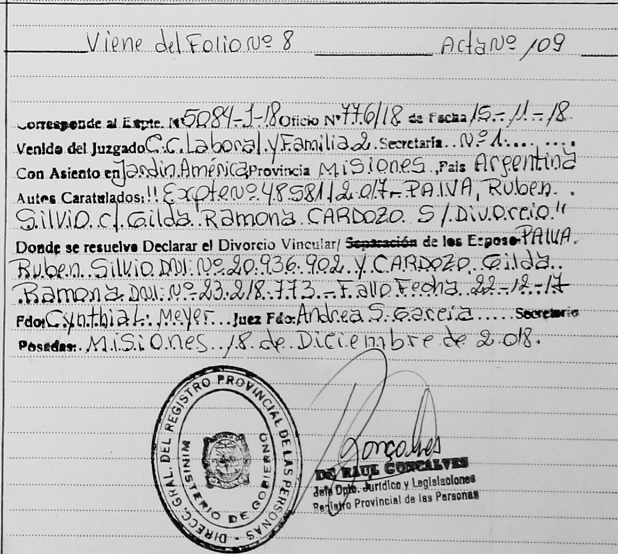 Viene del Folio Nº 8 Acta Nº 109
Corresponde al Expte. Nº 5084-J-18 Oficio Nº 776/18 de Fecha 15-11-18
Venido del Juzgado C.C. Laboral y Familia 2 Secretaría Nº 1
Con Asiento en Jardin América Provincia Misiones, Pais Argentina
Autos Caratulados: "Expte Nº 48581/2017- PAIVA, Ruben
Silvio c/ Gilda Ramona CARDOZO S/ Divorcio"
Donde se resuelve Declarar el Divorcio Vincular/ Separación de los Esposos PAIVA
Ruben Silvio DNI: Nº 20.936.902 y CARDOZO Gilda
Ramona DNI: Nº 23.218.773 - Fallo Fecha 22-12-17
Fdo: Cynthia L. Meyer Juez Fdo: Andrea S. Garcia Secretario
Posadas: Misiones 18 de Diciembre de 2018.
DIRECC. GRAL. DEL REGISTRO PROVINCIAL DE LAS PERSONAS
MINISTERIO DE GOBIERNO
Gonçalves
DR RAUL GONCALVES
Jefe Dpto. Jurídico y Legislaciones
Registro Provincial de las Personas